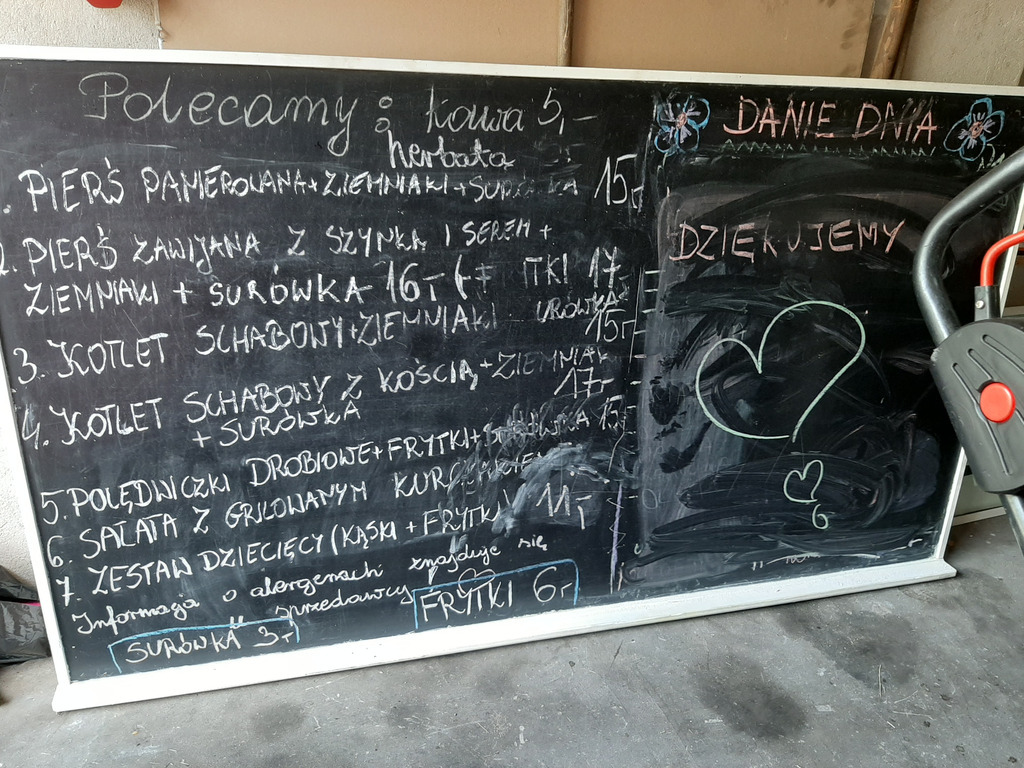 Polecamy: kawa 5,-
herbata
1. PIERŚ PANIEROWANA+ZIEMNIAKI+SURÓWKA 15,-
2. PIERŚ ZAWIJANA Z SZYNKĄ I SEREM +
ZIEMNIAKI + SURÓWKA 16,- 17,-
3. KOTLET SCHABOWY+ZIEMNIAKI
15,-
4. KOTLET SCHABOWY Z KOŚCIĄ,+ZIEMNIAK
+ SURÓWKA 17,-
5. POLĘDWICZKI DROBIOWE+FRYTKI+ 15,-
6. SAŁATA Z GRILOWANYM
7. ZESTAW DZIECIĘCY (KĄSKI + FRYTKI) 11,-
Informacja o alergenach znajduje się
u sprzedawcy
SURÓWKA 3,-
FRYTKI 6,-
DANIE DNIA
DZIĘKUJEMY